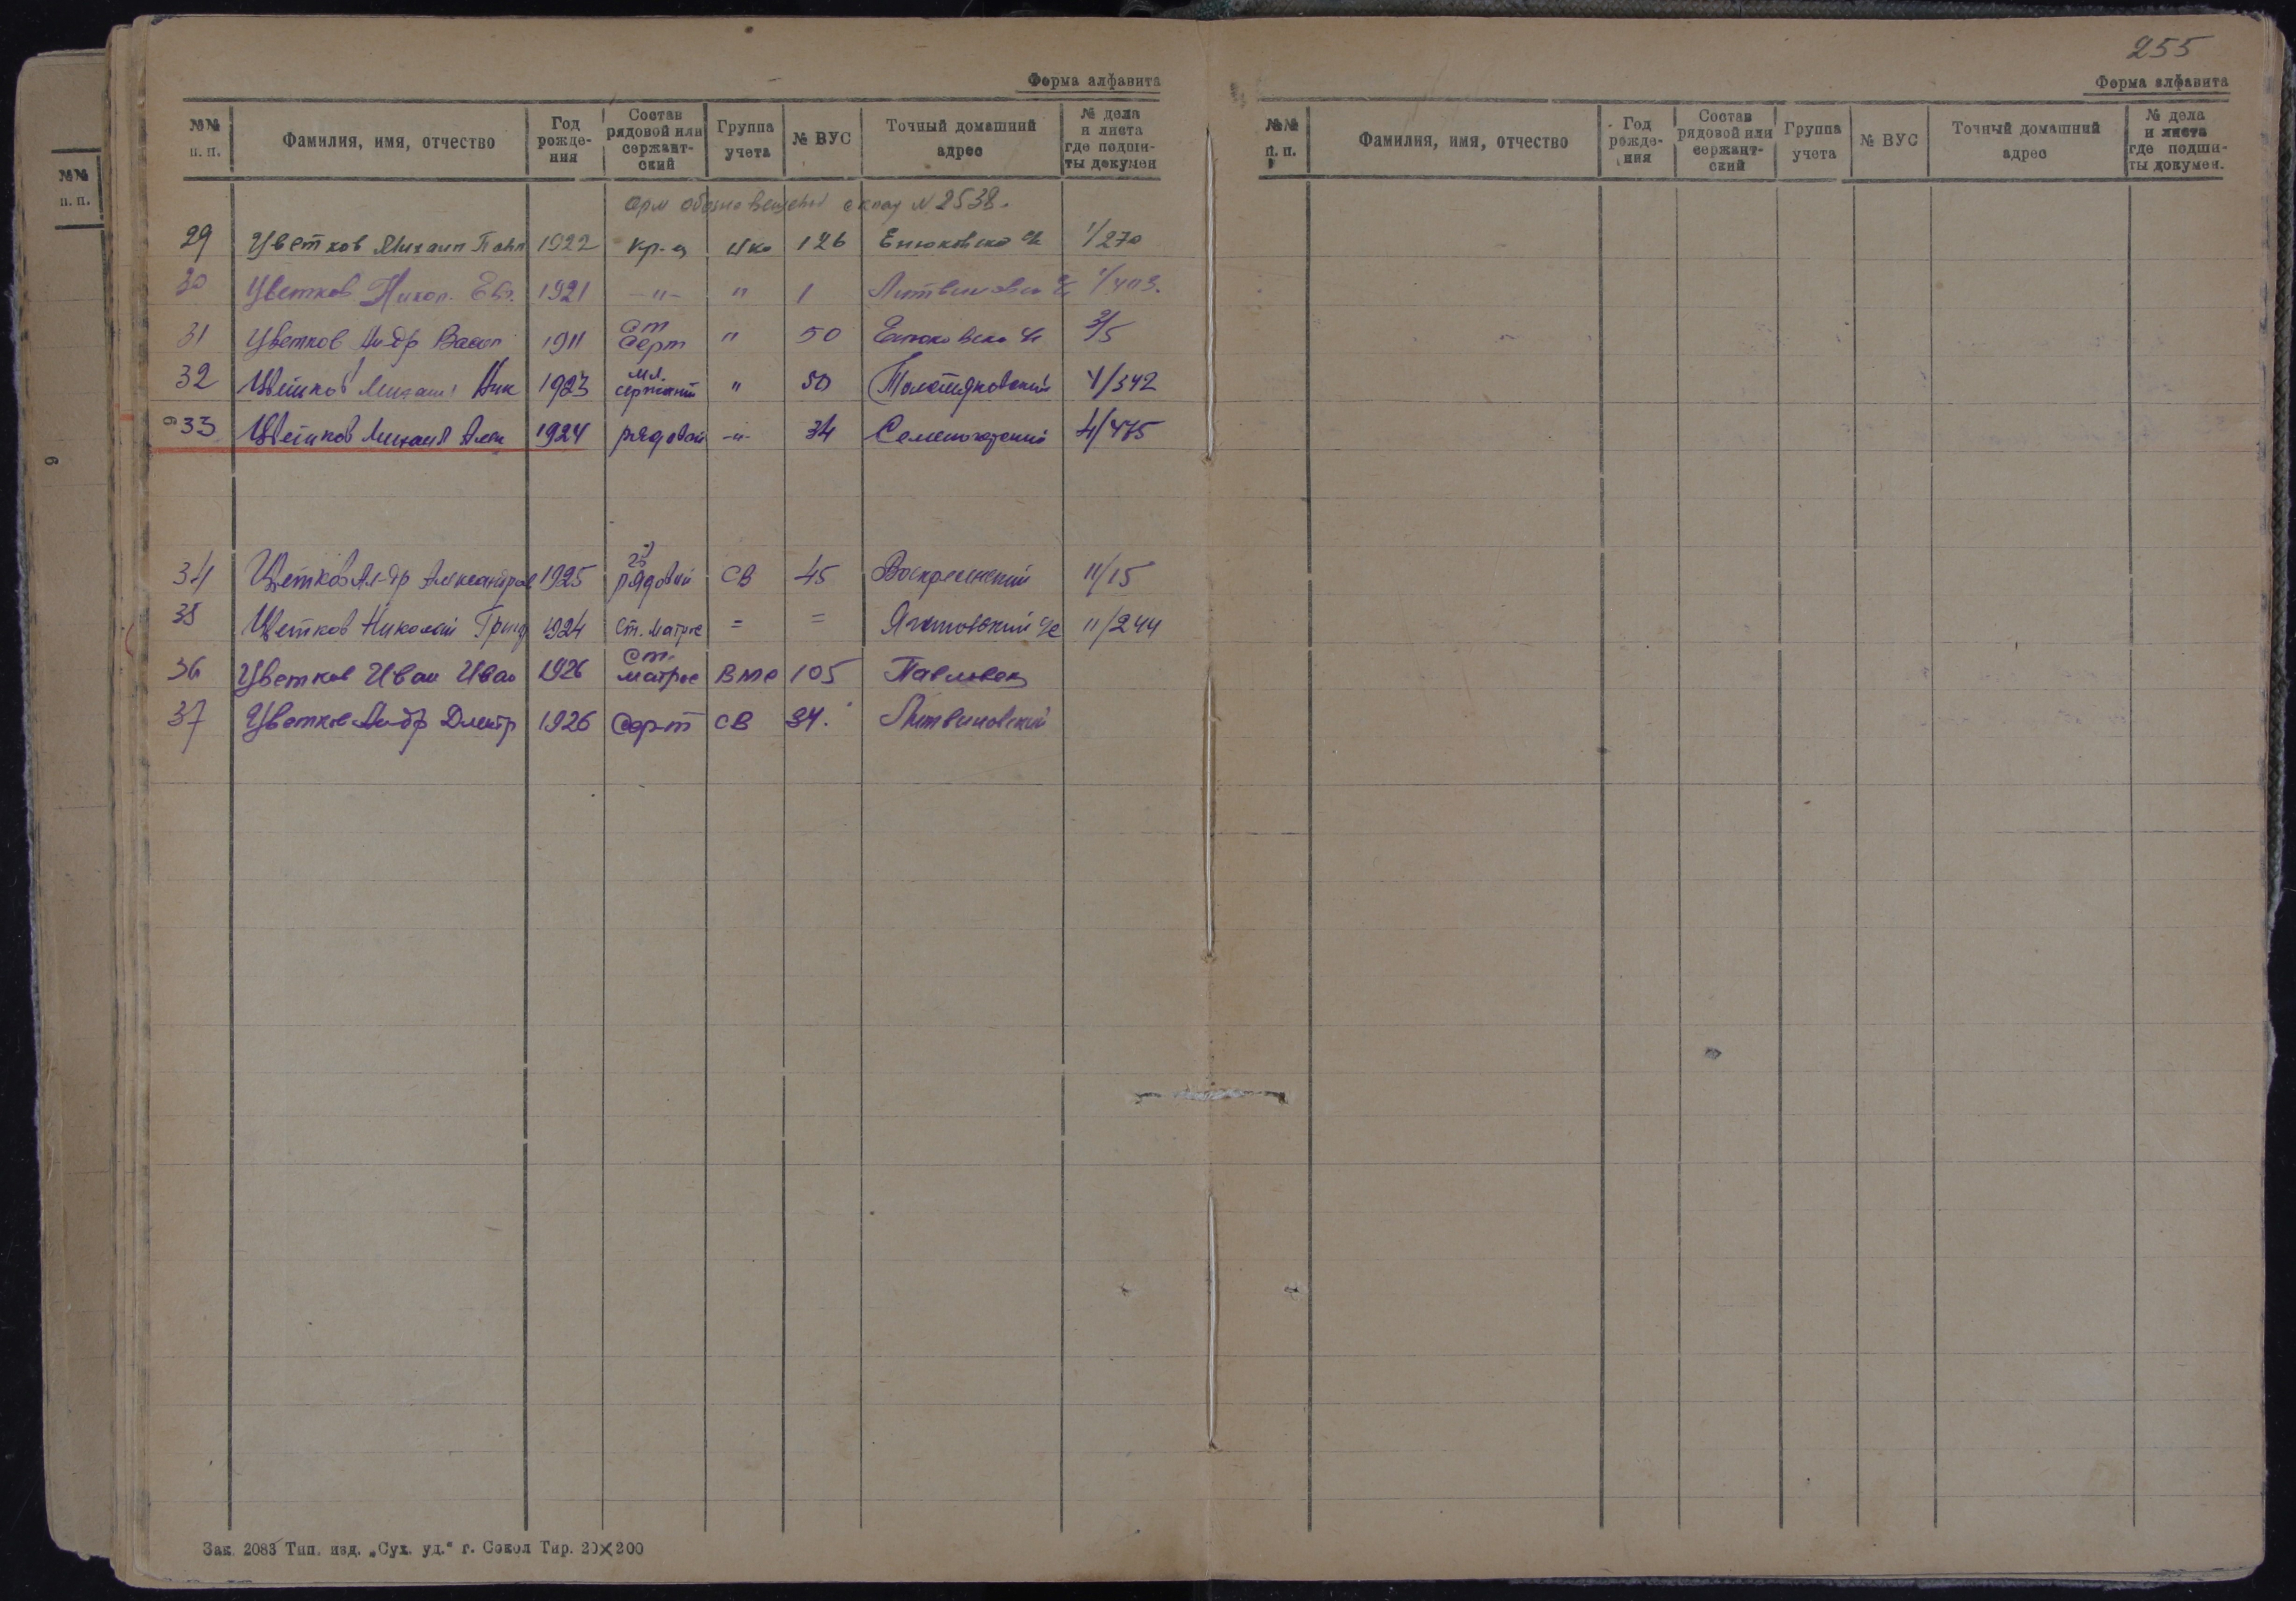 255
Форма алфавита
№№ п. п. Фамилия, имя, отчество Год рожде- ния Состав рядовой или сержант- ский Группа учета № ВУС Точный домашний адрес № дела и листа где подши- ты докумен
№ 2538.
29 Цветков Михаил 1922 кр-ц 126 Енюковско 1/270
30 Цветков Никол. 1921 -"- " 1 Литвиновск 1/403.
31 Цветков Ал-др Васил 1911 Ст Серт " 50 Енюковско 3/5
32 Цветков Михаил Ник 1923 мл. сержант " 50 4/342
33 Цветков Михаил Алек 1924 рядовой -"- 34 4/475
34 Цветков Ал-др Александров 1925 рядовой СВ 45 Воскресенский 11/15
35 Цветков Николай Григ 1924 ст. матрос = = Ягановский с/с 11/244
36 Цветков Иван Иван 1926 ст. матрос ВМС 105
37 Цветков Ал-др Дмитр 1926 Сер-т СВ 34. Литвиновский
Зак. 2083 Тип. изд. „Сух. уд.“ г. Сокол Тир. 20×200
Форма алфавита
№№ п. п. Фамилия, имя, отчество Год рожде- ния Состав рядовой или сержант- ский Группа учета № ВУС Точный домашний адрес № дела и листа где подши- ты докумен.
№№ п. п.